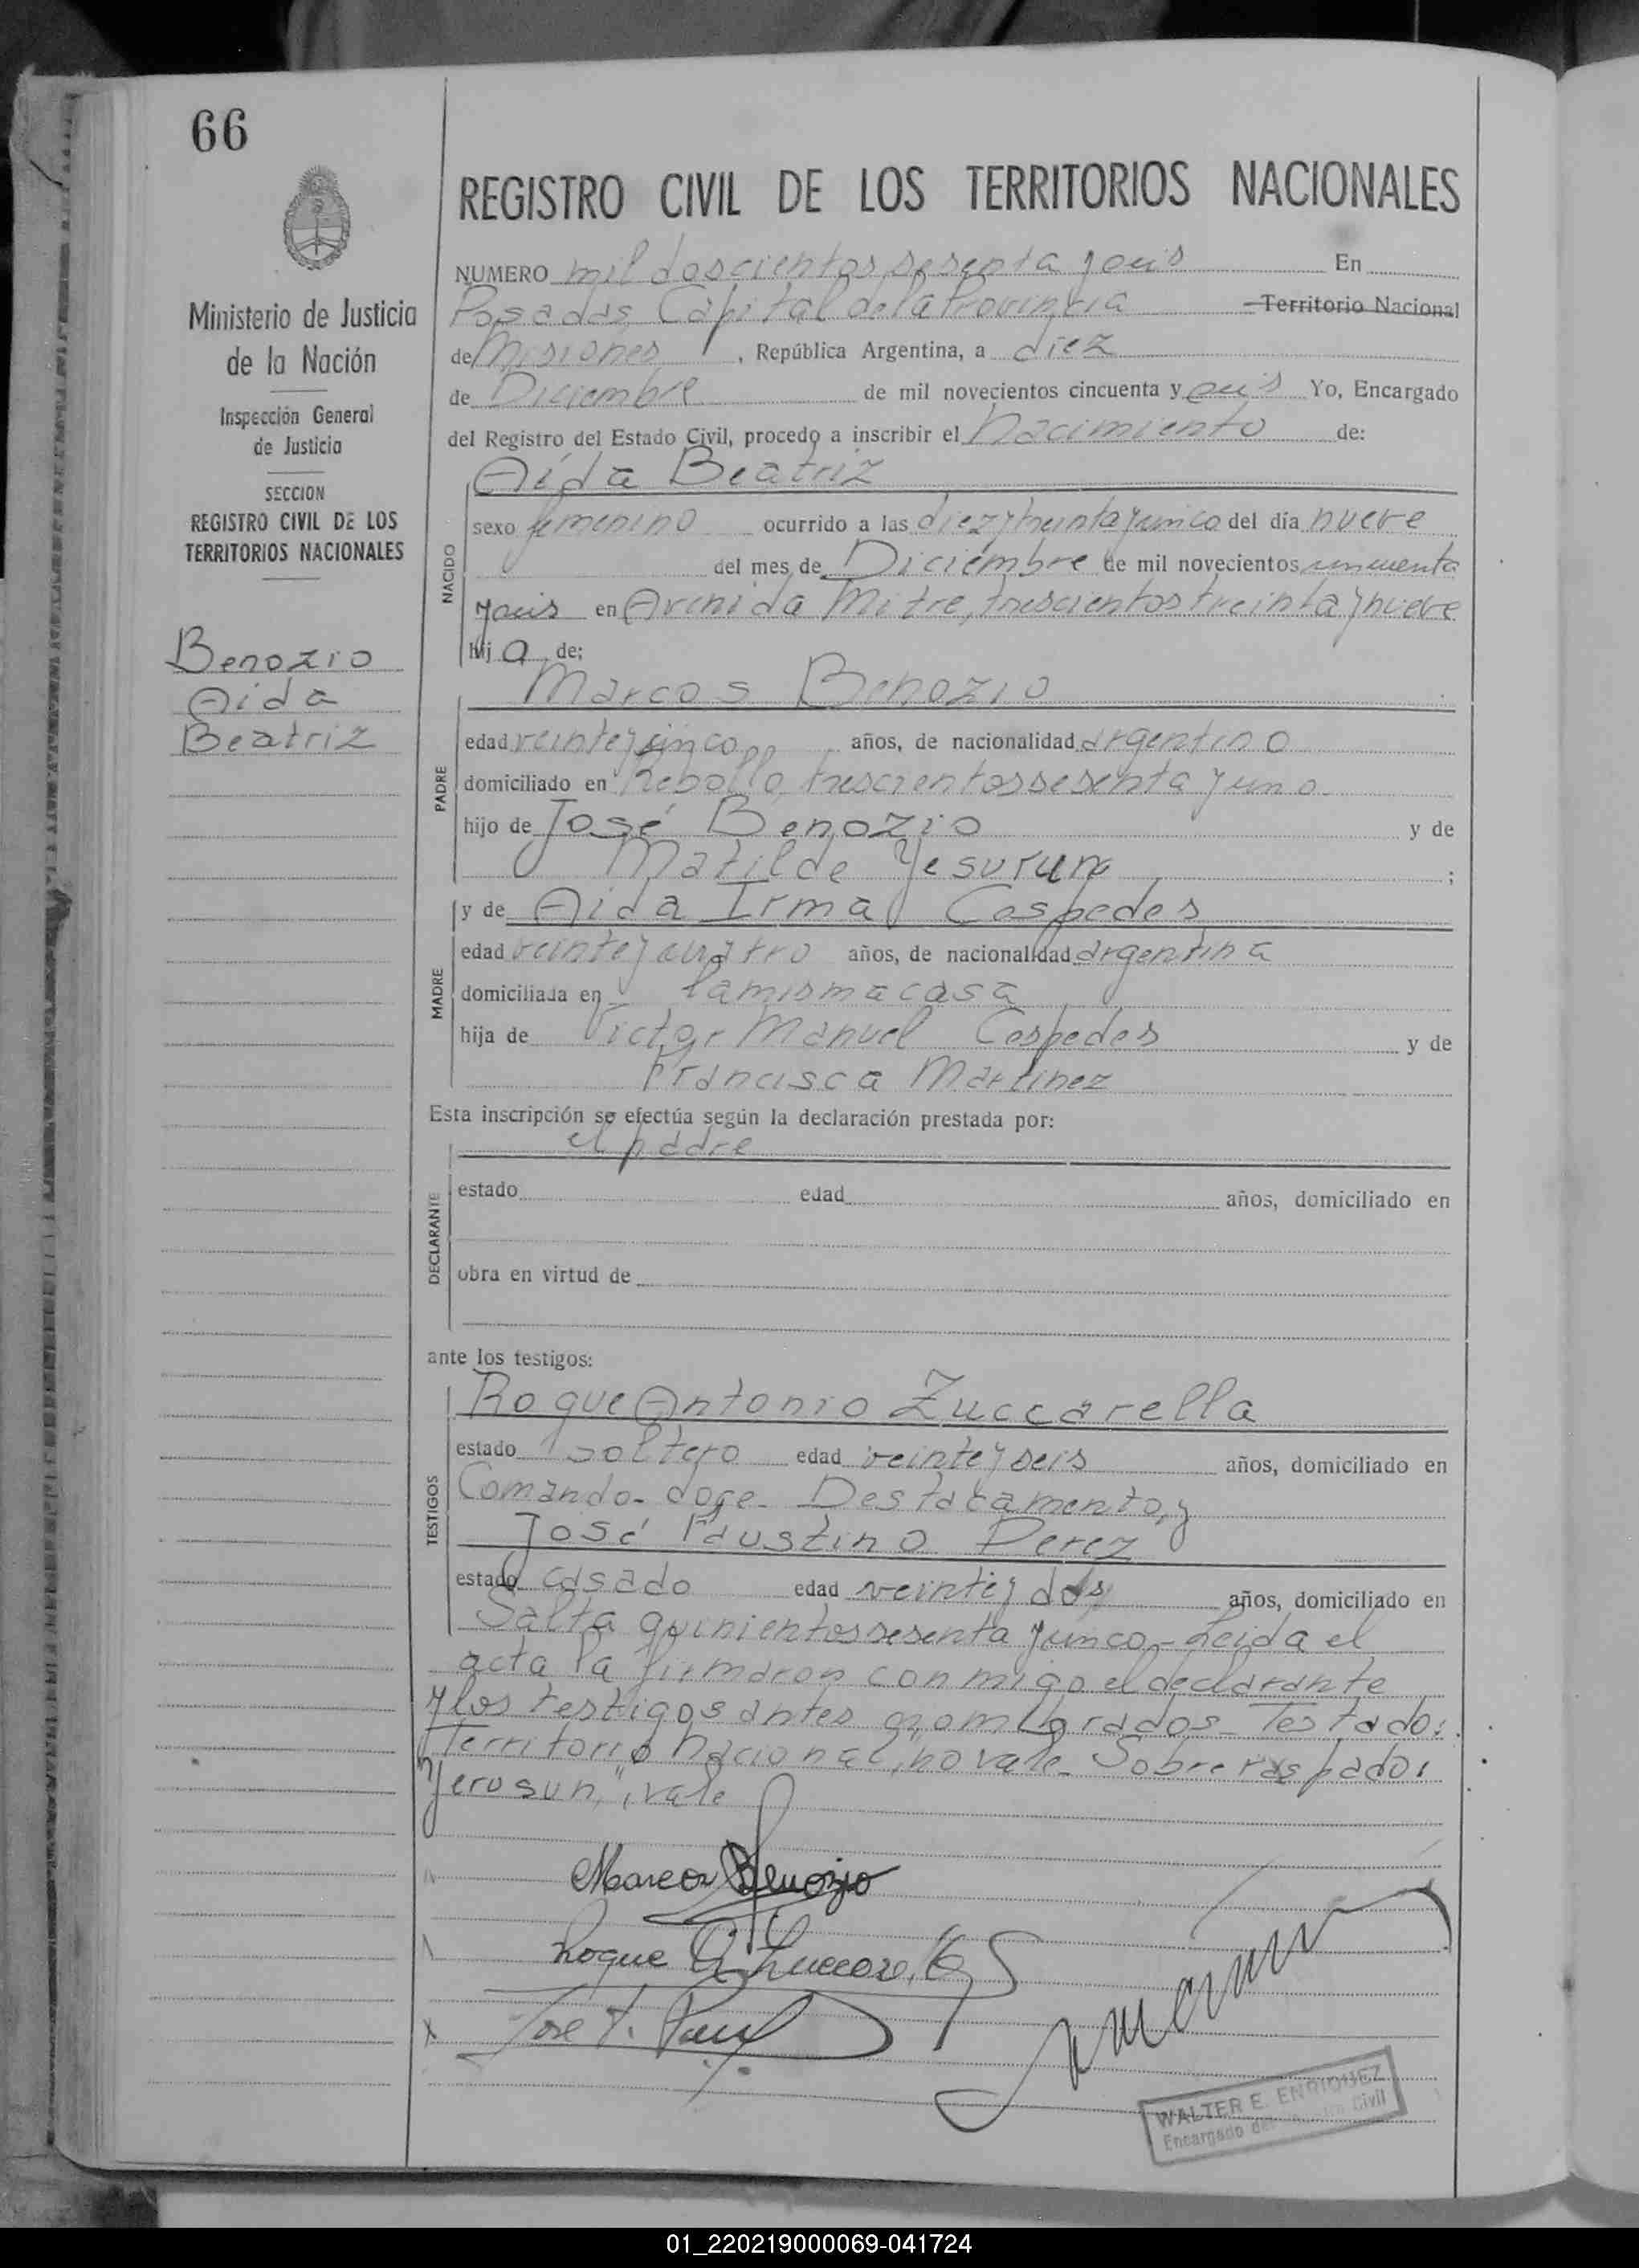 66
REGISTRO CIVIL DE LOS TERRITORIOS NACIONALES
Ministerio de Justicia
de la Nación
Inspección General
de Justicia
SECCION
REGISTRO CIVIL DE LOS
TERRITORIOS NACIONALES
Benozio
Aida
Beatriz
NUMERO mil doscientos sesenta y seis En
Posadas, Capital de la Provincia Territorio Nacional
de Misiones, República Argentina, a diez
de Diciembre de mil novecientos cincuenta y seis Yo, Encargado
del Registro del Estado Civil, procedo a inscribir el nacimiento de:
Aída Beatriz
NACIDO
sexo femenino ocurrido a las diez y treinta y cinco del día nueve
del mes de Diciembre de mil novecientos cincuenta
y seis en Avenida Mitre, trescientos treinta y nueve
hij a de:
Marcos Benozio
PADRE
edad veinte y cinco años, de nacionalidad argentino
domiciliado en Rebollo, trescientos sesenta y uno
hijo de José Benozio y de
Matilde Yesurun ;
y de Aida Irma Cespedes
MADRE
edad veinte y cuatro años, de nacionalidad argentina
domiciliada en la misma casa
hija de Victor Manuel Cespedes y de
Francisca Martinez
Esta inscripción se efectúa según la declaración prestada por:
el padre
DECLARANTE
estado edad años, domiciliado en
obra en virtud de
ante los testigos:
Roque Antonio Zuccarella
TESTIGOS
estado soltero edad veinte y seis años, domiciliado en
Comando-doce-Destacamento, y
José Faustino Perez
estado casado edad veinte y dos años, domiciliado en
Salta quinientos sesenta y cinco - Leida el
acta la firmaron conmigo el declarante
y los testigos antes nombrados - Testado:
"Territorio Nacional", no vale - Sobre raspado:
Yerosun", vale
Marcos Benozio
Roque A. Zuccarella
José F. Perez
WALTER E. ENRIQUEZ
Encargado del Civil
01_220219000069-041724